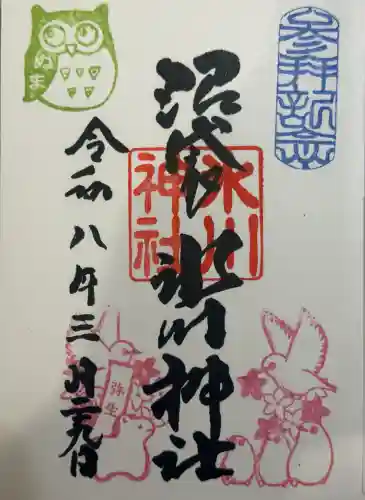 参拝記念
沼袋氷川神社
氷川神社
令和八年三月二九日
ぬま
弥生